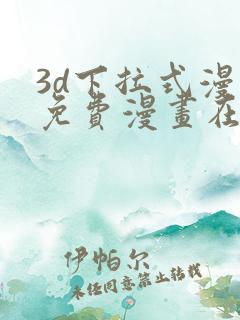 3d下拉式漫
免費漫畫在
伊帕尔
未经同意禁止转载